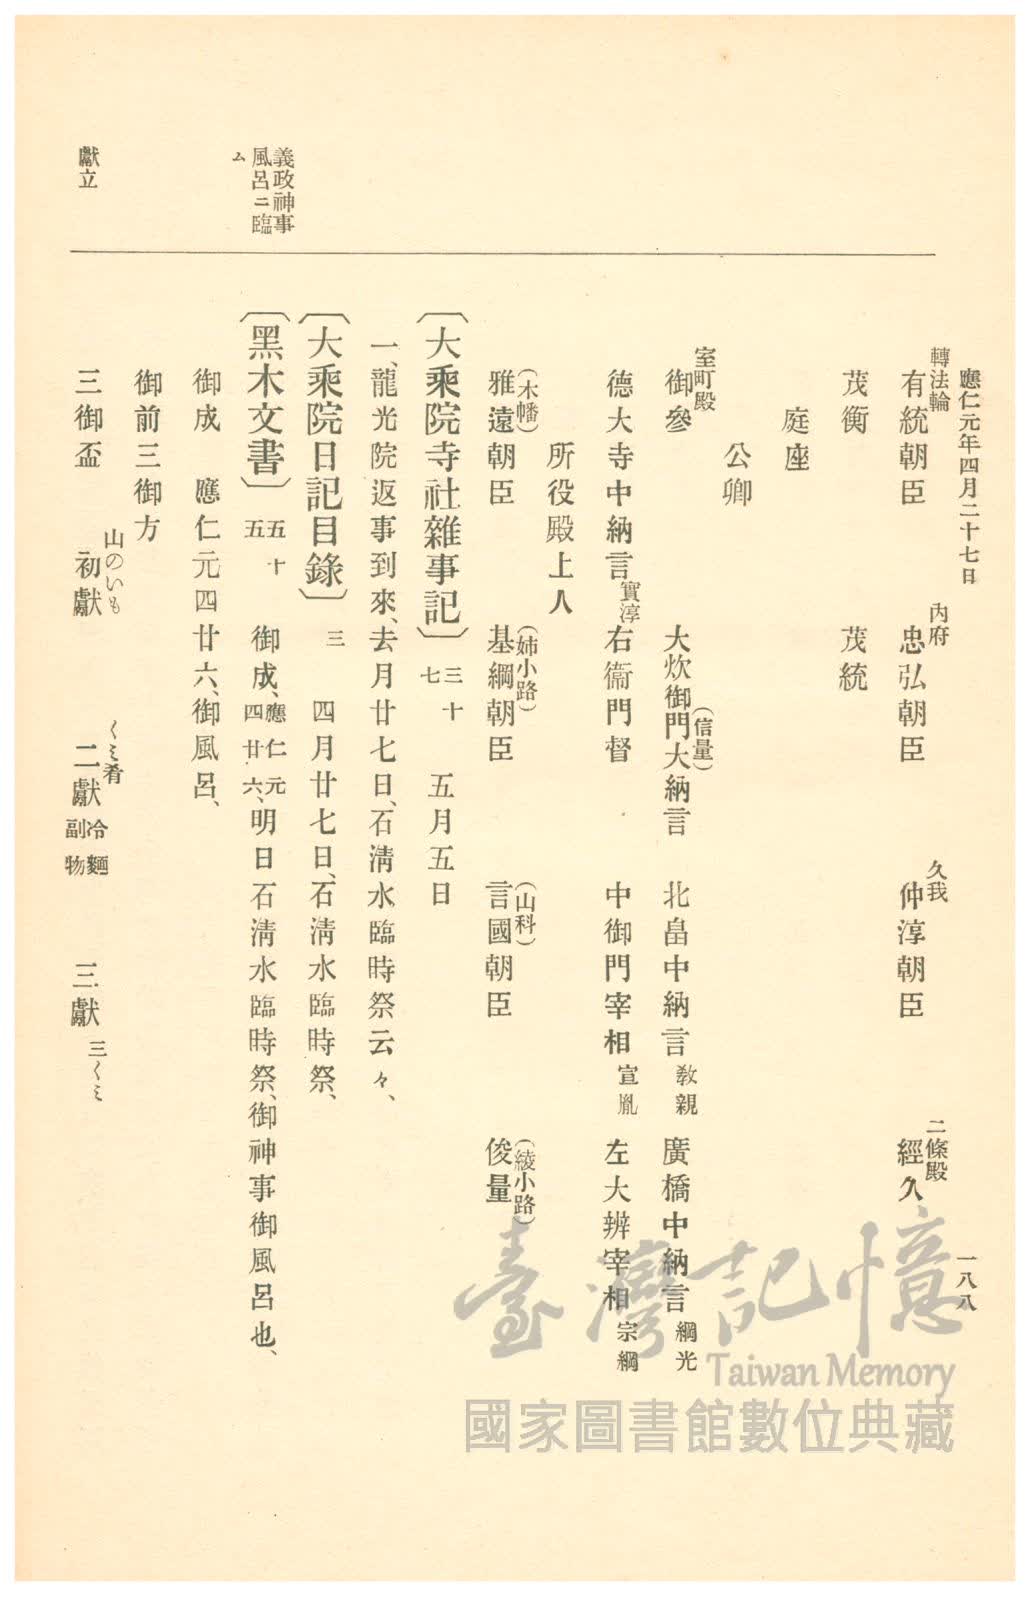 應仁元年四月二十七日
一八八
轉法輪
有統朝臣
內府
忠弘朝臣
久我
仲淳朝臣
二條殿
經久
茂衡
茂統
庭座
公卿
室町殿
御參
大炊御門大納言
(信量)
北畠中納言敎親
廣橋中納言綱光
德大寺中納言實淳
右衞門督
中御門宰相宣胤
左大辨宰相宗綱
所役殿上人
(木幡)
雅遠朝臣
(姉小路)
基綱朝臣
(山科)
言國朝臣
(綾小路)
俊量
〔大乘院寺社雜事記〕三十七 五月五日
一、龍光院返事到來、去月廿七日、石淸水臨時祭云々、
〔大乘院日記目錄〕三 四月廿七日、石淸水臨時祭、
義政神事風呂ニ臨ム
〔黑木文書〕五十五 御成、應仁元四廿六、明日石淸水臨時祭、御神事御風呂也、
御成 應仁元四廿六、御風呂、
御前三御方
獻立
三御盃
山のいも
初獻
くミ肴
二獻冷麵副物
三獻三くミ
臺灣記憶
Taiwan Memory
國家圖書館數位典藏